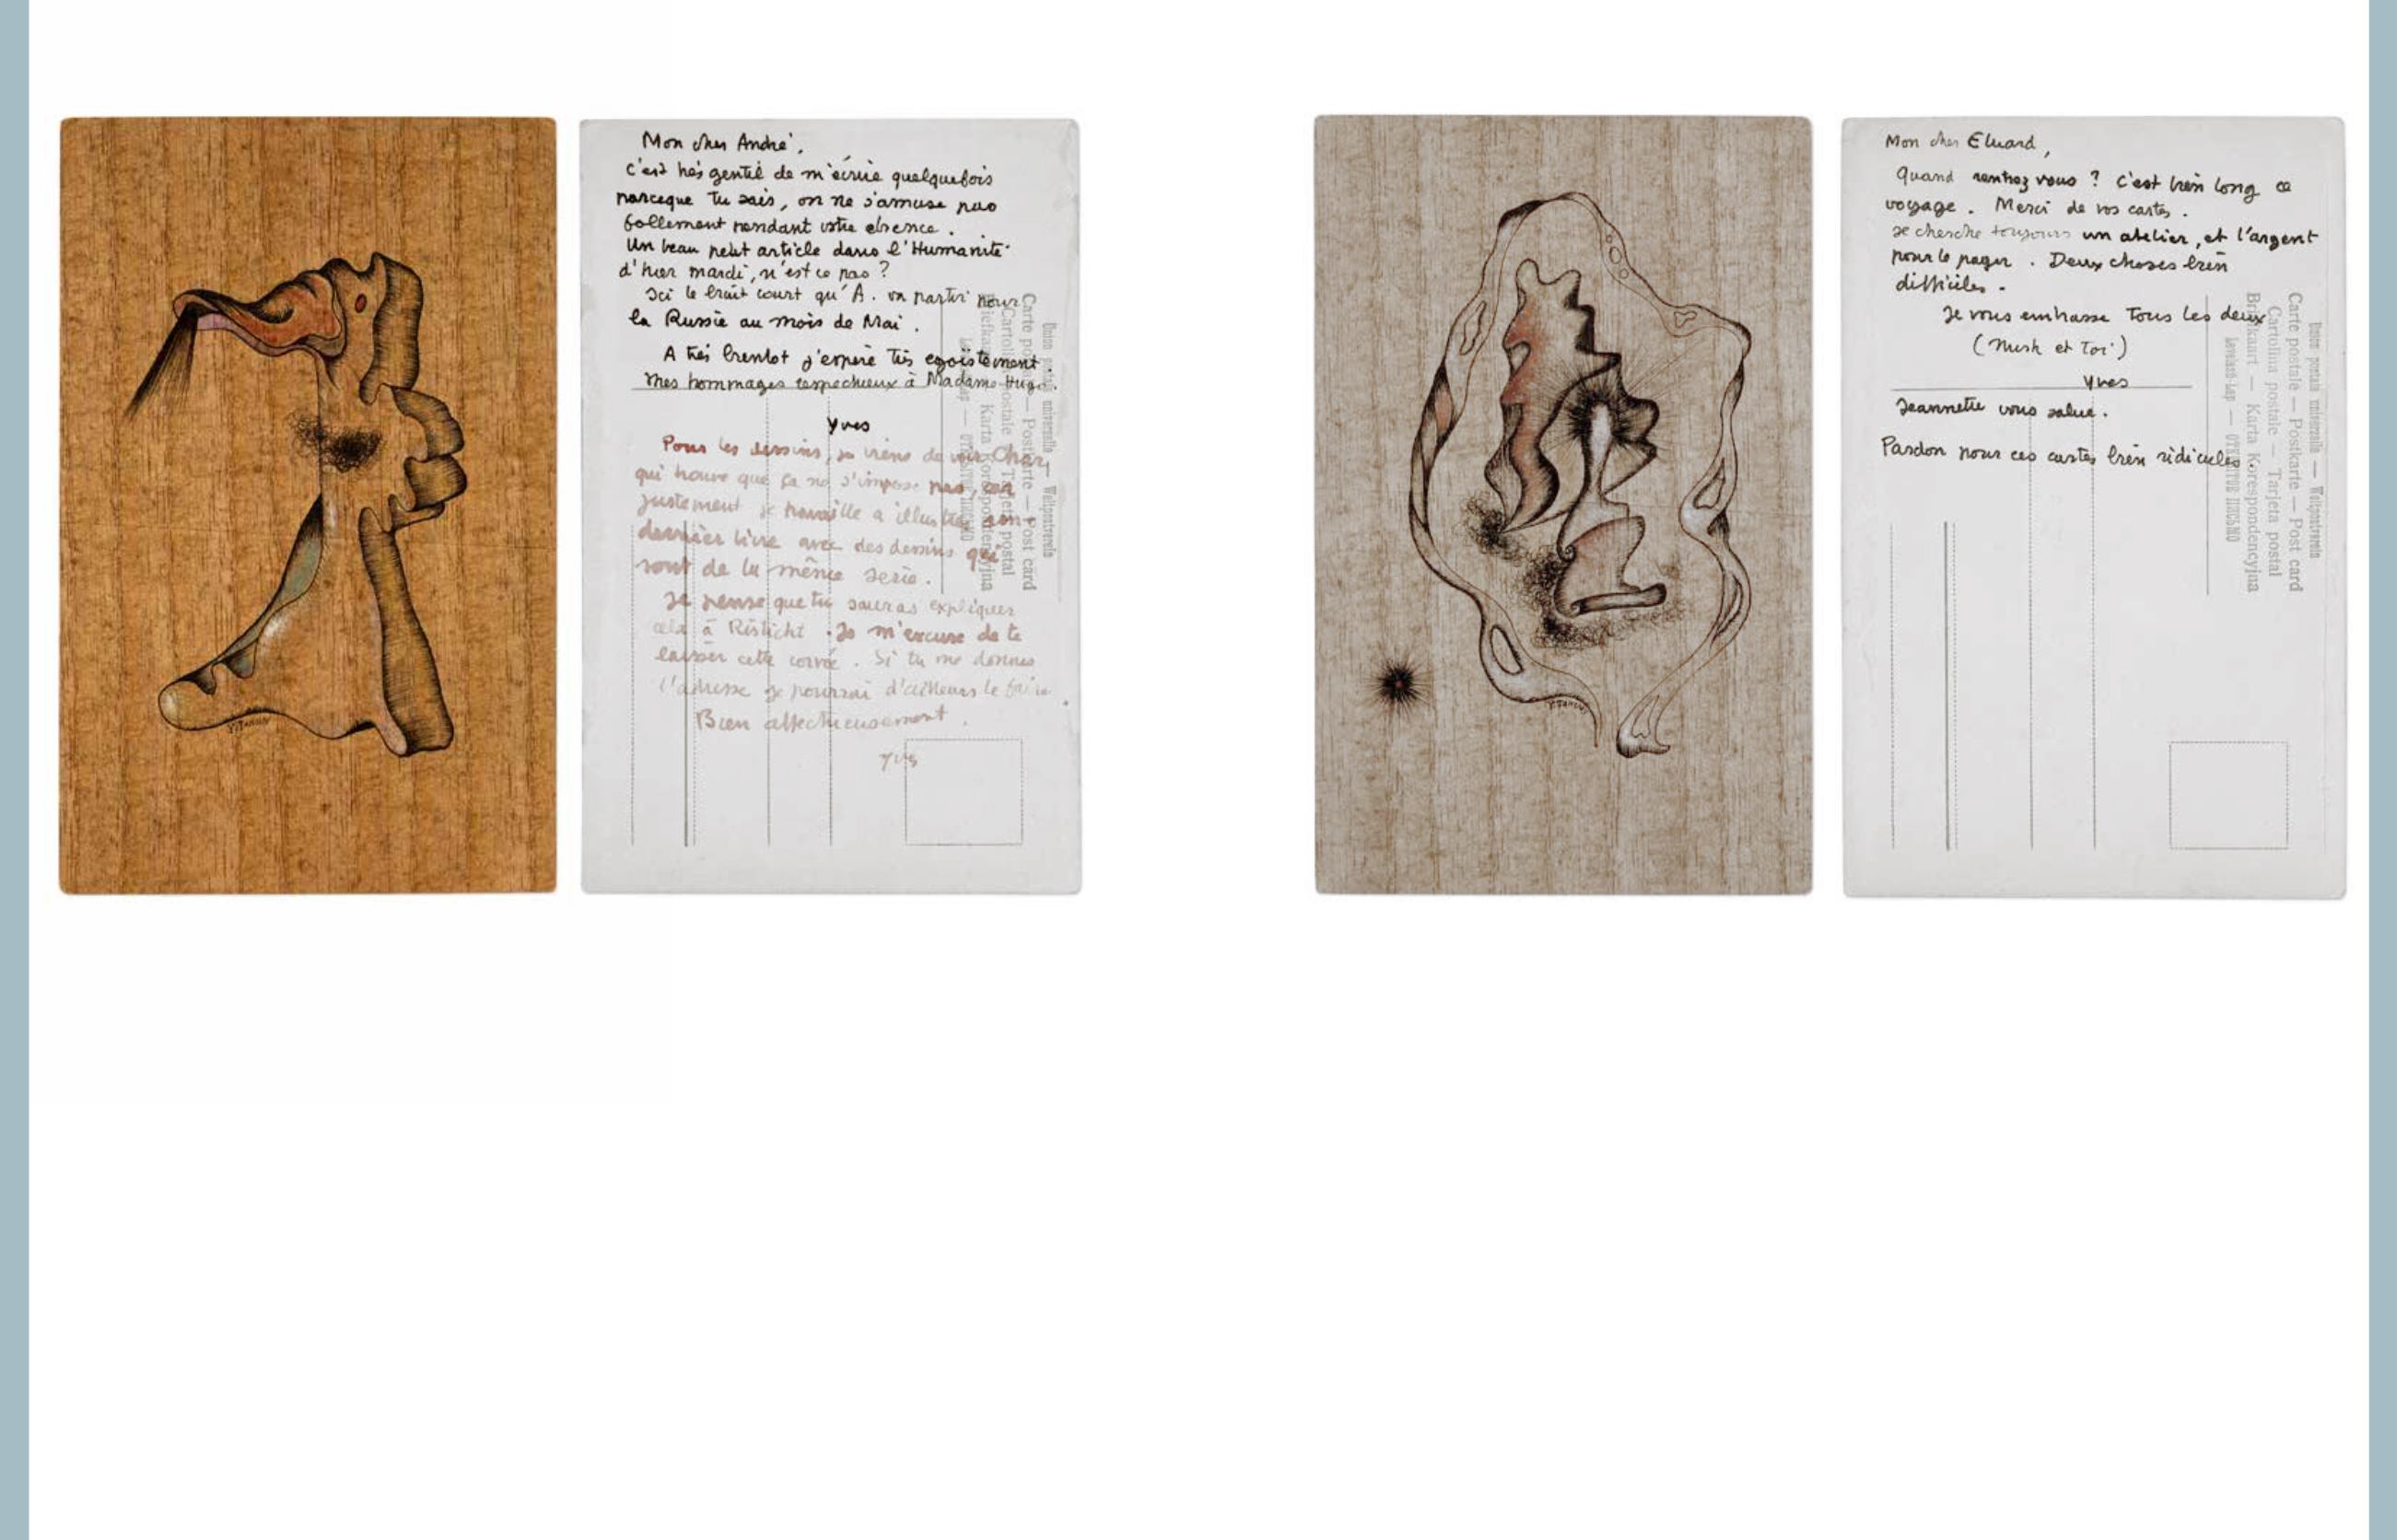 Y. TANGUY
Mon cher André,
C'est très gentil de m'écrire quelquefois
parceque tu sais, on ne s'amuse pas
follement pendant votre absence.
Un beau petit article dans l'Humanité
d'hier mardi, n'est ce pas ?
Ici le bruit court qu'A. va partir pour
la Russie au mois de Mai.
A très bientot j'espère très egoïstement.
Mes hommages respectueux à Madame Hugo.
Yves
Pour les dessins, je viens de voir Char,
qui trouve que ça ne s'impose pas, car
justement je travaille a illustrer son
dernier livre avec des dessins qui
sont de la même serie.
Je pense que tu sauras expliquer
cela à Risticht. Je m'excuse de te
laisser cette corvée. Si tu me donnes
l'adresse je pourrai d'ailleurs le faire.
Bien affectueusement.
Yves
Union postale universelle — Weltpostverein
Carte postale — Postkarte — Post card
Cartolina postale — Tarjeta postal
Briefkaart — Karta Korespondencyjna
Y. TANGUY
Mon cher Eluard,
Quand rentrez vous ? C'est bien long ce
voyage. Merci de vos cartes.
Je cherche toujours un atelier, et l'argent
pour le payer. Deux choses bien
difficiles.
Je vous embrasse Tous les deux
(Nush et Toi)
Yves
Jeannette vous salue.
Pardon pour ces cartes bien ridicules.
Union postale universelle — Weltpostverein
Carte postale — Postkarte — Post card
Cartolina postale — Tarjeta postal
Briefkaart — Karta Korespondencyjna